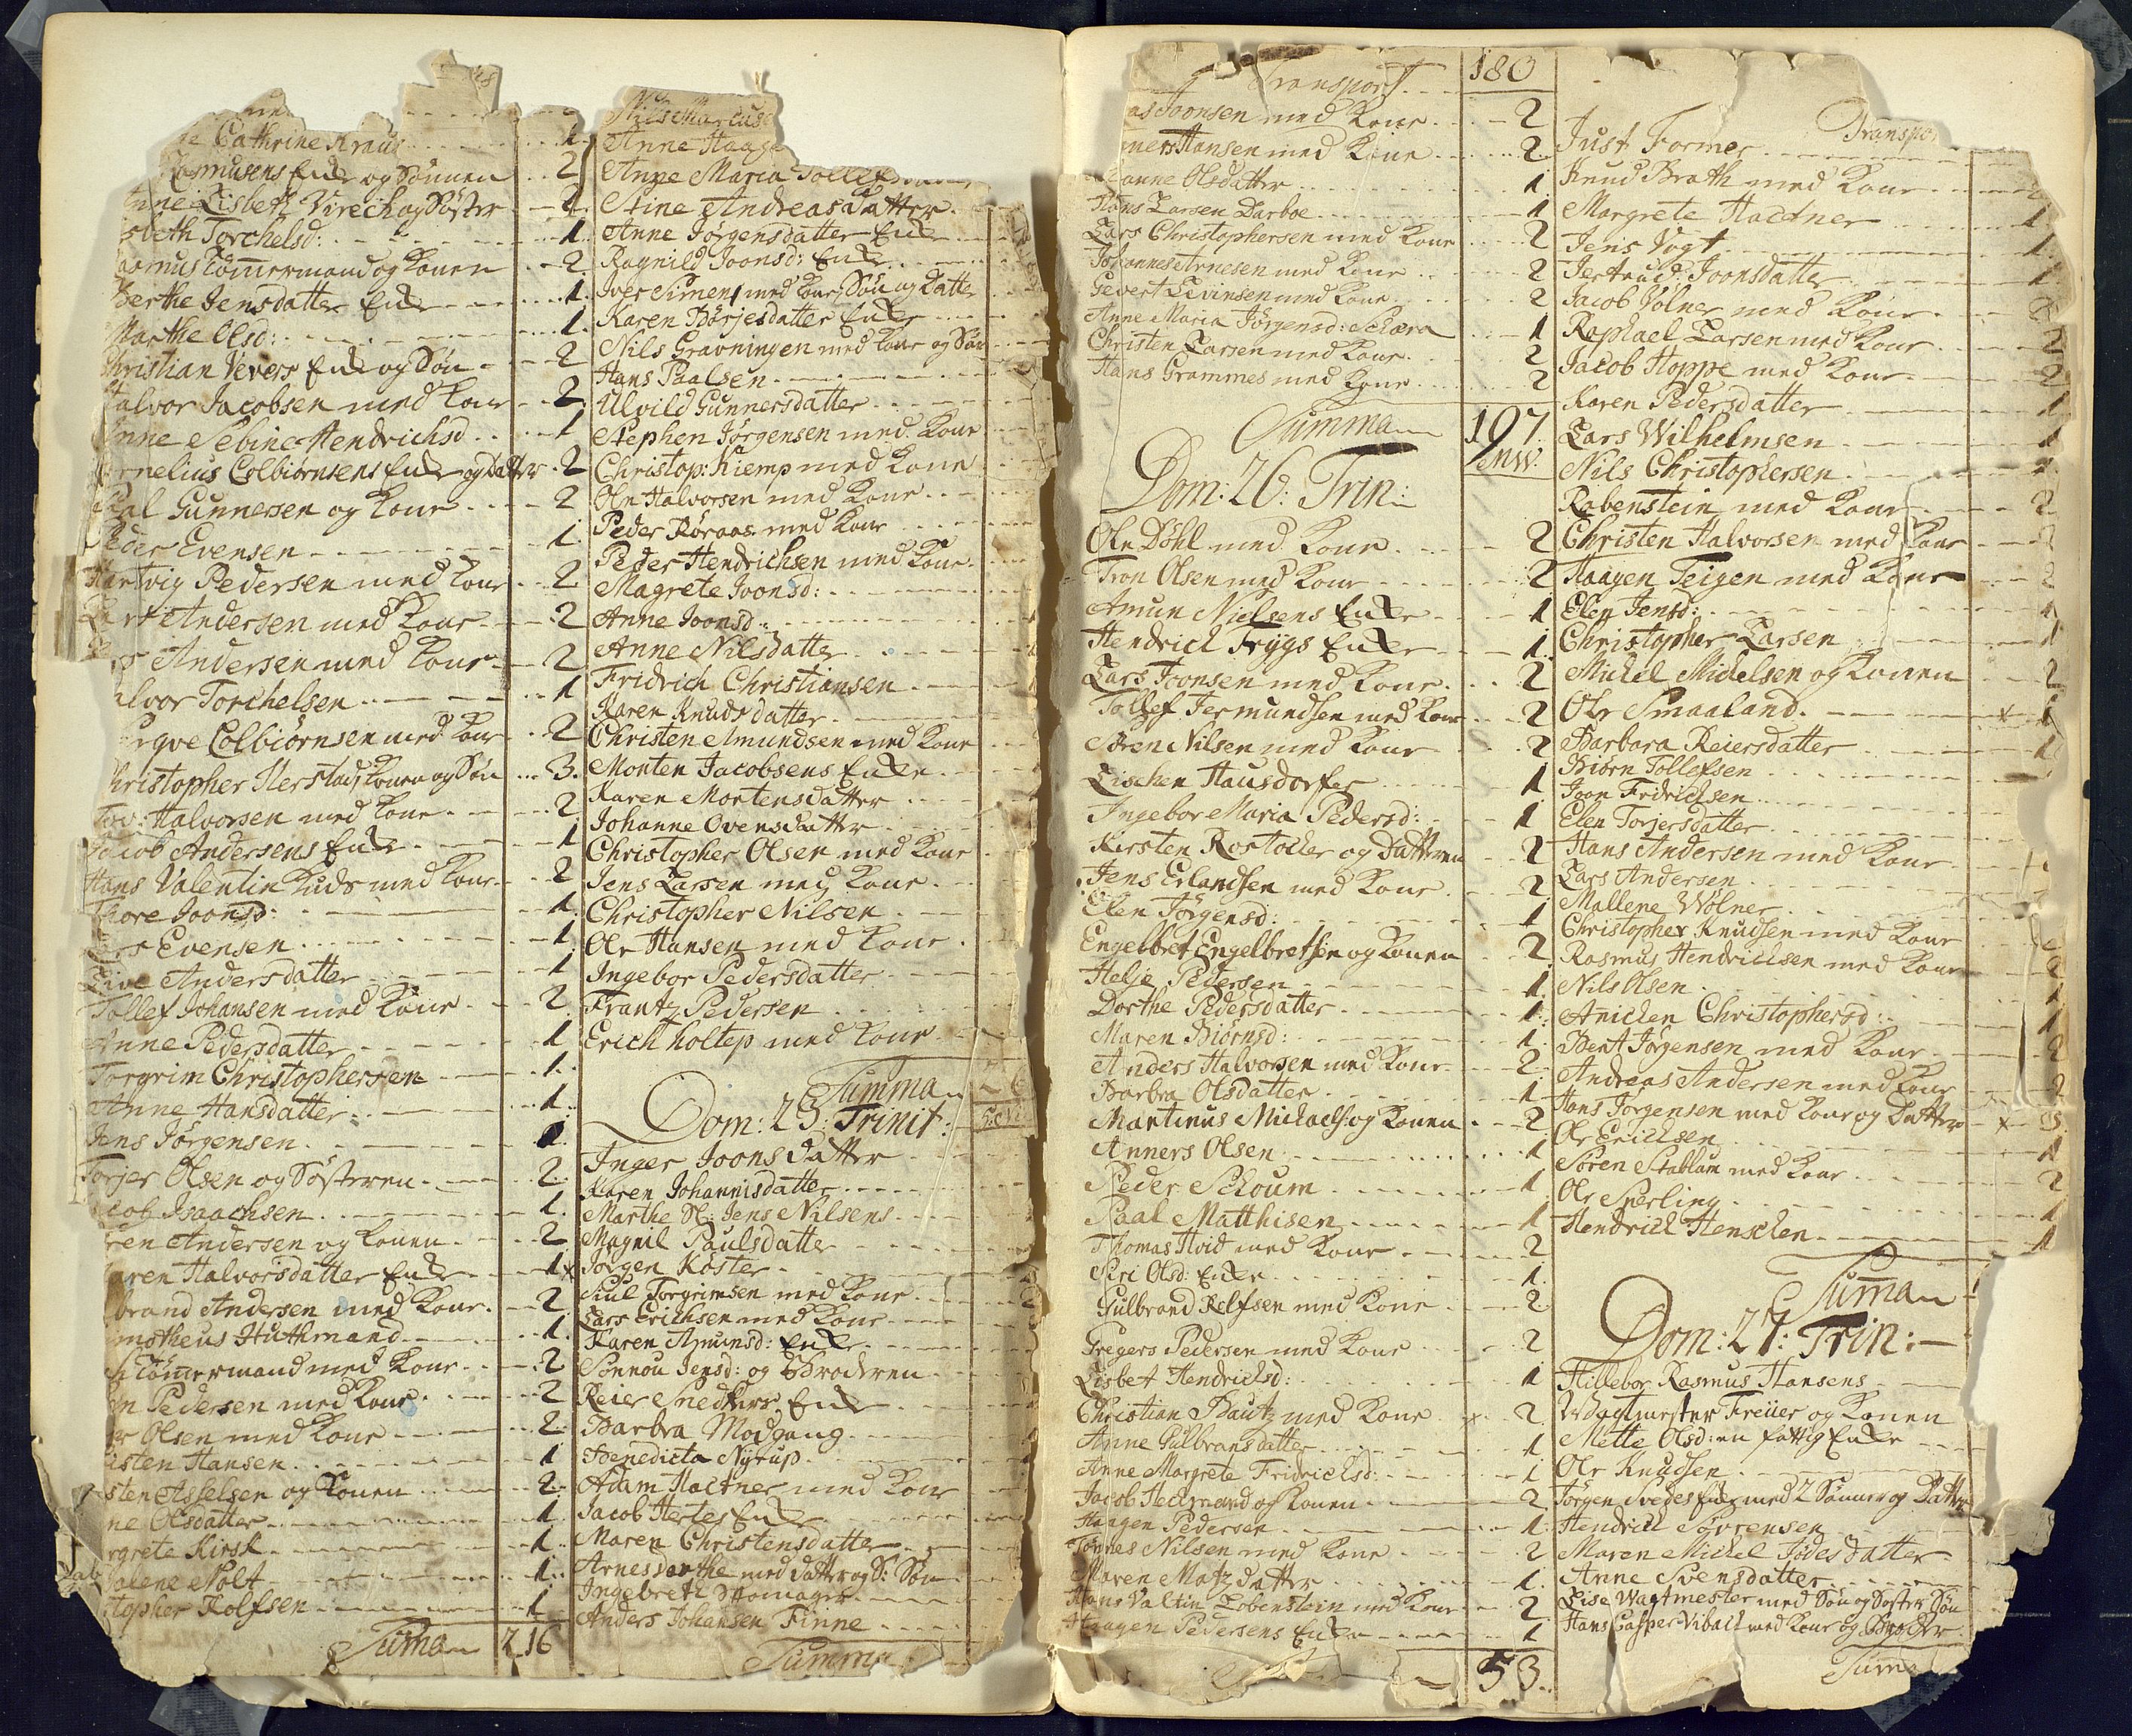 Cathrine Kraus 1
Rasmusens Enke og Sönnen 2
Anne Lisbeth Virech og Söster 2
sbeth Torchelsd: 1
Rasmus Tömmermand og Konen 2
Berthe Jensdatter Enke 1
Marthe Olsd: 1
Christian Vevers Enke og Sön 2
Halvor Jacobsen med Kone 2
Anne Sebine Hendrichsd 1
Cornelius Colbiörnsens Enke og datter 2
Gunnersen og Kone 2
Peder Evensen 1
Hartvig Pedersen med Kone 2
Andersen med Kone 2
Andersen med Kone 2
alvor Torchelsen 1
Colbiörnsen med Kone 2
Christopher Kerstad, Konen og Sön 3
Halvorsen med Kone 2
Jacob Andersens Enke 1
Hans Valentin Kuds med Kone 2
Thore Joonsd: 1
Evensen 1
Live Andersdatter 1
Tollef Johansen med Kone 2
Anne Pedersdatter 1
Torgrim Christophersen 1
Anne Hansdatter 1
Jens Jörgensen 1
Torjer Olsen og Sösteren 2
cob Isaachsen 1
ren Andersen og Konen 2
aren Halvorsdatter Enke 1
brand Andersen med Kone 2
motheus Huthmand 1
Tömmermand med Kone 2
Pedersen med Kone 2
er Olsen med Kone 2
isten Hansen 1
sten Asselsen og Konen 2
ne Olsdatter 1
rgrete Kirsk 1
alene Nolt 1
topher Rolfsen 1
Summa 216
Nils Marcus
Anne Haag
Anne Maria Tollefs
Stine Andreasdatter
Anne Jörgensdatter Enke
Ragnild Joonsd: Enke
Iver Simens med Kone, Sön og datter
Karen Börjesdatter Enke
Nils Gravningen med Kone og Sön
Hans Paalsen
Ulvild Gunnersdatter
Stephen Jörgensen med Kone
Christop: Kiemp med Kone
Ole Halvorsen med Kone
Peder Röraas med Kone
Peder Hendrichsen med Kone
Magrete Joonsd:
Anne Joonsd:
Anne Nilsdatter
Fridrich Christiansen
Karen Knudsdatter
Christen Amundsen med Kone
Morten Jacobsens Enke
Karen Mortensdatter
Johanne Ovensdatter
Christopher Olsen med Kone
Jens Larsen med Kone
Christopher Nilsen
Ole Hansen med Kone
Ingebor Pedersdatter
Frantz Pedersen
Erich holtep med Kone
Summa
Dom: 25: Trinit:
Inger Joonsdatter
Karen Johannisdatter
Marthe Sl: Jens Nilsens
Magnil Paulsdatter
x Jörgen Köster
Siul Torgrimsen med Kone
Lars Erichsen med Kone
Karen Amunsd: Enke
Sönnou Jensd: og Broderen
Reier Snedkers Enke
Barbra Modgang
Benedicta Nyrup
Adam Hactner med Kone
Jacob Hertes Enke
Maren Christensdatter
Arnes dorthe med datter og S: Sön
Ingebreth
Anders Johansen Finne
Summa
Transport 180
as Joonsen med Kone 2
ners Hansen med Kone 2
anne Olsdatter 1
Hans Larsen Darboe 1
Lars Christophersen med Kone 2
Johannes Arnesen med Kone 2
Gevert Levinsen med Kone 2
Anne Maria Jörgensd: Schæra 1
Christen Larsen med Kone 2
Hans Grammes med Kone 2
Summa 197
Dom: 26: Trin:
Ole Döhl med Kone 2
Tron Olsen med Kone 2
Amun Nielsens Enke 1
Hendrich Trygs Enke 1
Lars Joonsen med Kone 2
Tollef Jermundsen med Kone 2
Sören Nilsen med Kone 2
Lischen Hausdorfer 1
Ingebor Maria Pedersd: 1
Kirsten Rostocker og datteren 2
Jens Erlandsen med Kone 2
Elen Jörgensd: 1
Engelbret Engelbretsen og Konen 2
Helje Pedersen 1
Dorthe Pedersdatter 1
Maren Biörnsd: 1
Anders Halvorsen med Kone 2
Barbra Olsdatter 1
Martinus Michaels: og Konen 2
Anners Olsen 1
Peder Schoum 1
Paal Matthisen 1
Thomas Hvid med Kone 2
Siri Olsd: Enke 1
Gulbrand Rolfsen med Kone 2
Gregers Pedersen med Kone 2
Lisbet Hendrichsd: 1
Christian Bautz med Kone x 2
Anne Gulbransdatter 1
Anne Margrete Fridrichsd: 1
Jacob Heckmand og Konen 2
Haagen Pedersen 1
Tönnes Nilsen med Kone 2
Maren Matzdatter 1
Hans Valtin Lobenstein med Kone 2
Haagen Pedersens Enke 1
53
Transpor
Just Former
Knud Brath med Kone 2
Margrete Hactner 1
Jens Vogt 1
Jertrud Joonsdatter 1
Jacob Völner med Kone 2
Raphael Larsen med Kone 2
Jacob Hoppe med Kone 2
Karen Pedersdatter 1
Lars Wilhelmsen 1
Nils Christophersen 1
Rabenstein med Kone 2
Christen Halvorsen med Kone 2
Haagen Teigen med Kone 2
Elen Jensd: 1
Christopher Larsen 1
Michel Michelsen og Konen 2
Ole Smaaland x 1
Barbara Reiersdatter 1
Biörn Tollefsen
Joon Fridrichsen
Elen Torjersdatter
Hans Andersen med Kone
Lars Andersen
Mallene Wölner
Christopher Knudsen med Kone
Rasmus Hendrichsen med Kone 2
Nils Olsen 1
Anichen Christophersd: 1
Bent Jörgensen med Kone 2
Andreas Andersen med Kone 2
Hans Jörgensen med Kone og Datter x 3
Ole Erichsen 1
Sören Stablum med Kone 2
Ole Sperling 1
Hendrich Henschen 1
Summa
Dom: 27: Trin:
Hillebor Rasmus Hansens
Wagtmester Freiier og Konen
Mette Olsd: en fattig Enke
Ole Knudsen
Jörgen Svedes Enke med 2 Sönner og Datter
Hendrich Sövrensen
Maren Michel Jödes datter
Anne Svensdatter
Lise Wagtmester med Sön og Söster Sön
Hans Casper Vibach med Kone og Broder
Summa